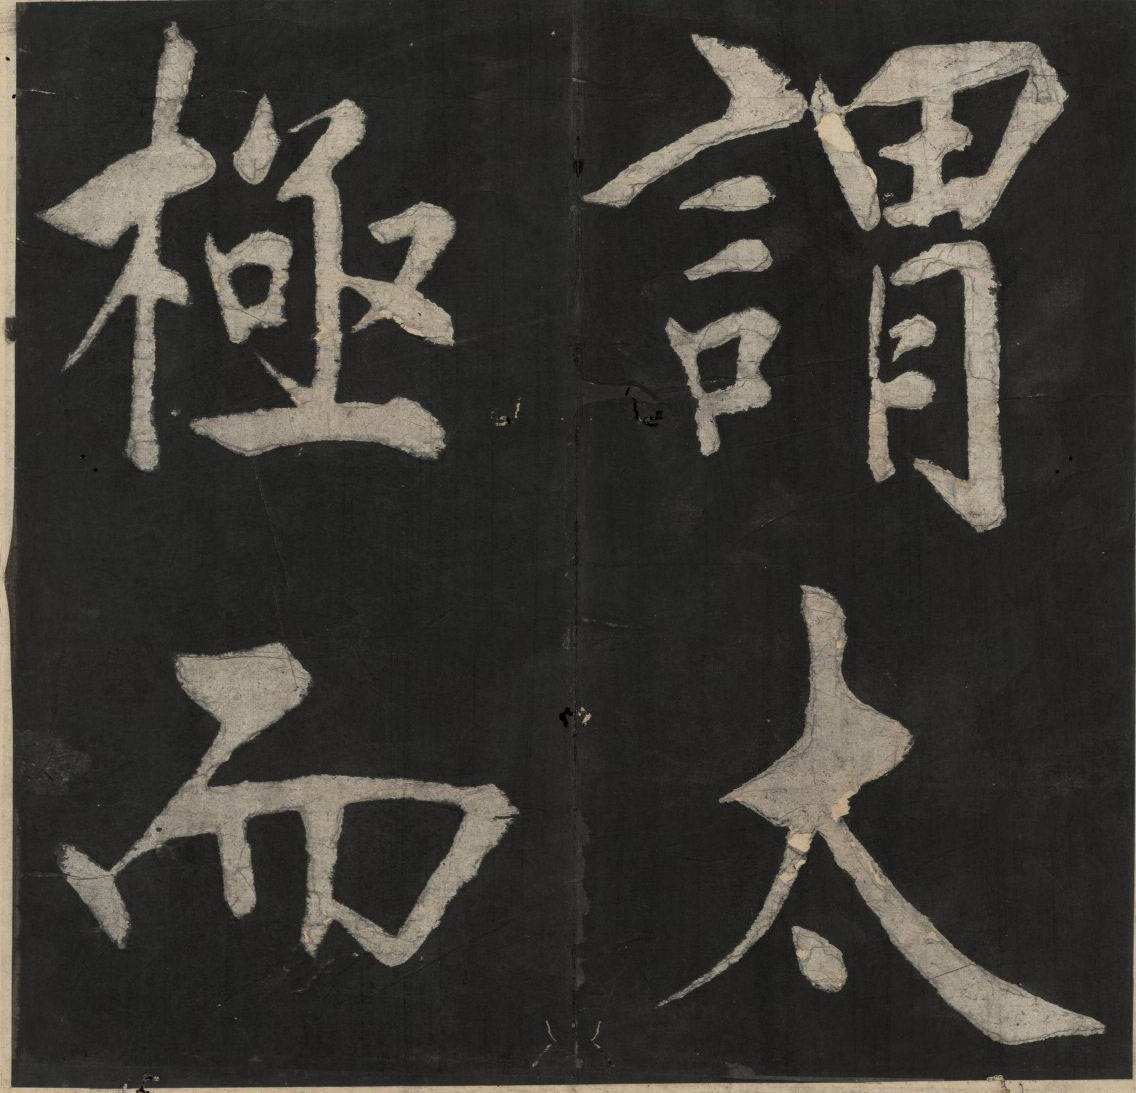 謂太
極而